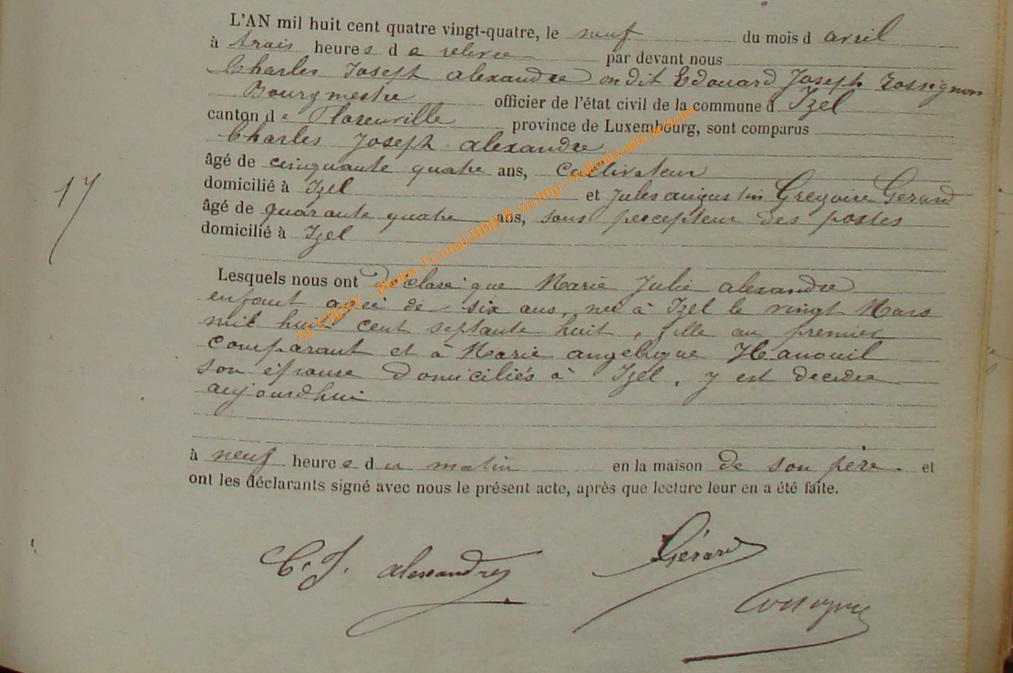 L'AN mil huit cent quatre vingt-quatre, le neuf du mois d avril
à trois heures de relevée par devant nous
Charles Joseph alexandre on dit Edouard Joseph Rossignon
Bourgmestre officier de l'état civil de la commune d Izel
canton de Florenville province de Luxembourg, sont comparus
Charles Joseph alexandre
âgé de cinquante quatre ans, cultivateur
domicilié à Izel et Jules augustin Gregoire Gerard
âgé de quarante quatre ans, sous percepteur des postes
domicilié à Izel
17
Lesquels nous ont déclaré que Marie Julie alexandre
enfant agée de six ans, née à Izel le vingt Mars
mil huit cent septante huit, fille au premier
comparant et à Marie angelique Hanouil
son épouse Domiciliés à Izel, y est décédée
aujourdhui
à neuf heures du matin en la maison de son père. et
ont les déclarants signé avec nous le présent acte, après que lecture leur en a été faite.
C. J. alexandre Gérard